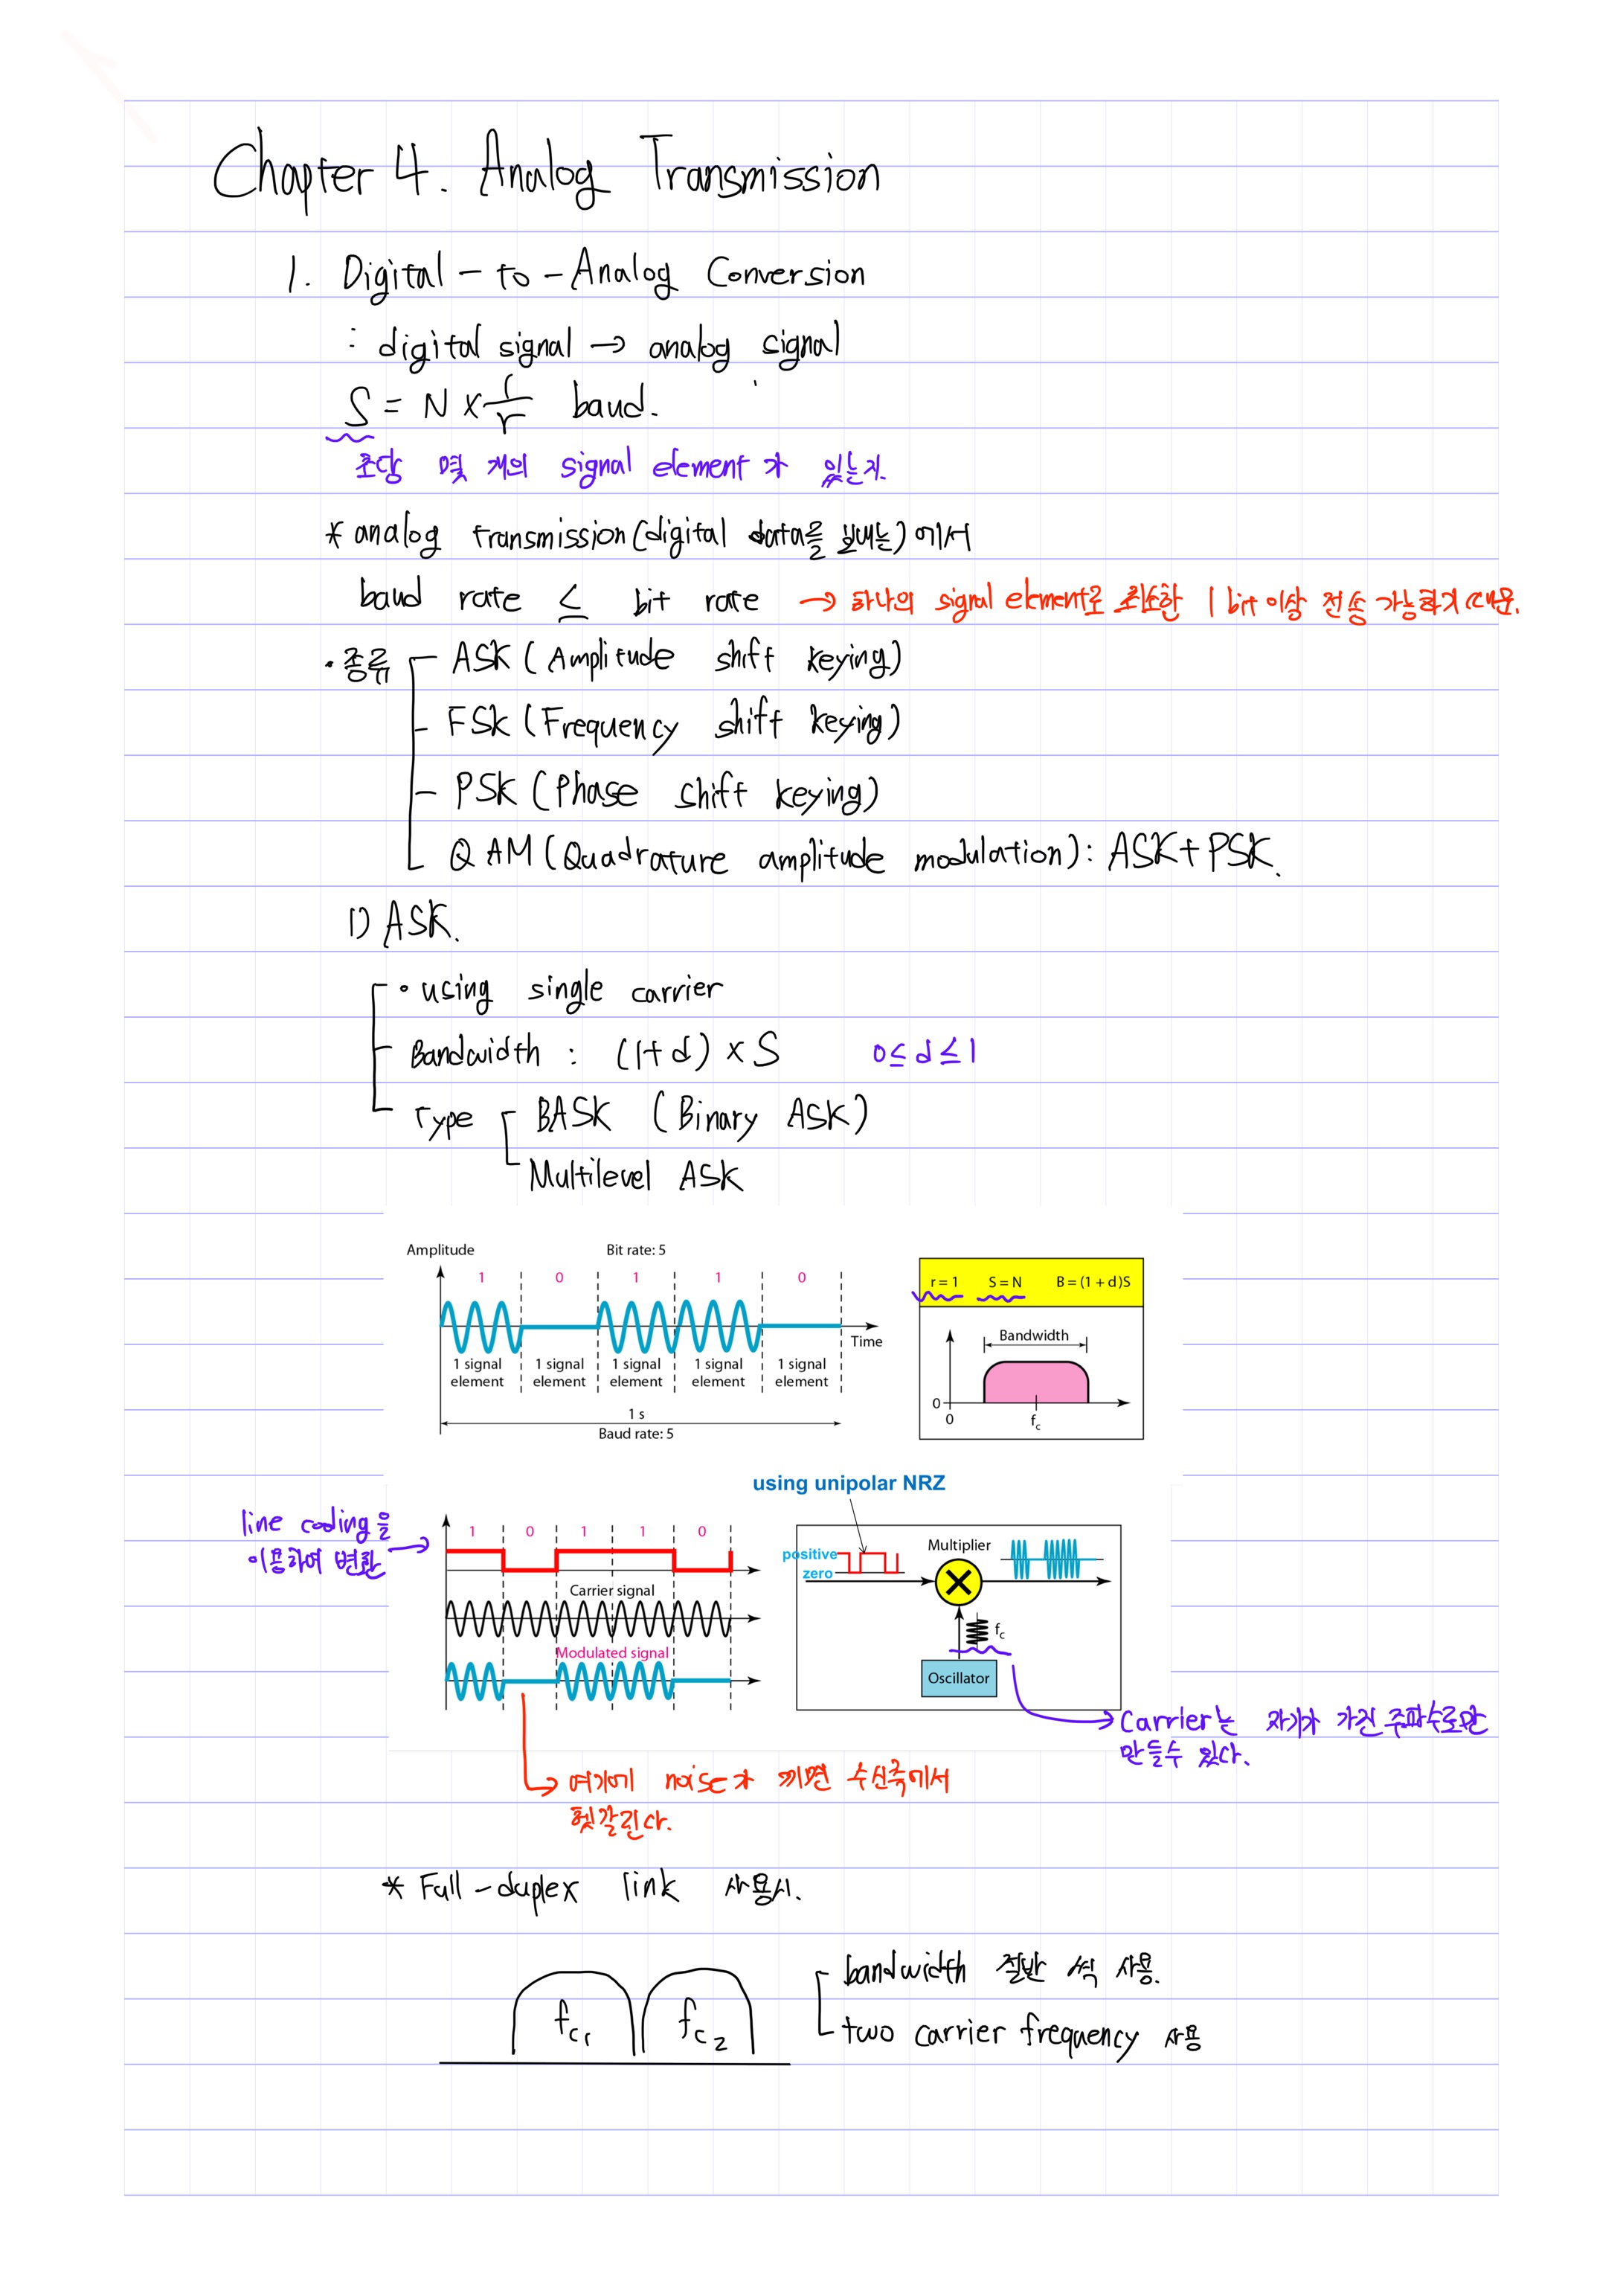 Chapter 4. Analog Transmission
1. Digital-to-Analog Conversion
: digital signal → analog signal
S = N × 1/r baud.
초당 몇 개의 signal element가 있는지.
* analog transmission(digital data을 보내는)에서
baud rate ≤ bit rate → 하나의 signal element로 최소한 1 bit 이상 전송 가능하기 때문.
· 종류
ASK (Amplitude shift keying)
FSK (Frequency shift keying)
PSK (Phase shift keying)
QAM (Quadrature amplitude modulation): ASK+PSK.
1) ASK.
• using single carrier
Bandwidth : (1+d) × S 0≤d≤1
Type
BASK (Binary ASK)
Multilevel ASK
Amplitude Bit rate: 5
1 0 1 1 0
Time
1 signal element 1 signal element 1 signal element 1 signal element 1 signal element
1 s
Baud rate: 5
r = 1 S = N B = (1 + d)S
Bandwidth
0
0 fc
using unipolar NRZ
line coding을
이용하여 변환 →
1 0 1 1 0
Carrier signal
Modulated signal
positive
zero
Multiplier
fc
Oscillator
Carrier는 자기가 가진 주파수로만
만들수 있다.
여기에 noise가 끼면 수신측에서
헷갈린다.
* Full-duplex link 사용시.
fc1 fc2
bandwidth 절반 씩 사용.
two carrier frequency 사용